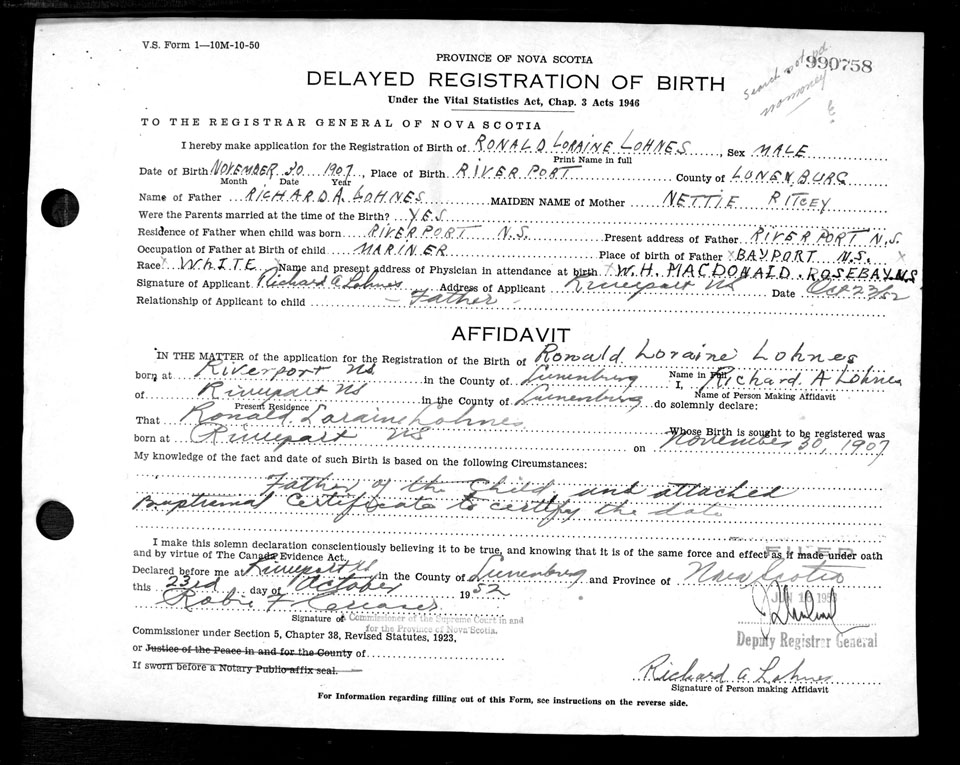 V.S. Form 1—10M-10-50
PROVINCE OF NOVA SCOTIA
990758
DELAYED REGISTRATION OF BIRTH
Search
no money
Under the Vital Statistics Act, Chap. 3 Acts 1946
TO THE REGISTRAR GENERAL OF NOVA SCOTIA
I hereby make application for the Registration of Birth of RONALD LORAINE LOHNES, Sex MALE
Print Name in full
Date of Birth NOVEMBER 30 1907, Place of Birth RIVERPORT County of LUNENBURG
Month Date Year
Name of Father RICHARD A. LOHNES MAIDEN NAME of Mother NETTIE RITCEY
Were the Parents married at the time of the Birth? YES
Residence of Father when child was born RIVERPORT N.S. Present address of Father RIVERPORT N.S.
Occupation of Father at Birth of child MARINER Place of birth of Father X BAYPORT N.S. X
Race X WHITE X Name and present address of Physician in attendance at birth X W.H. MACDONALD. ROSEBAY N.S
Signature of Applicant Richard A Lohnes Address of Applicant Riverport NS Date Oct 23/52
Relationship of Applicant to child — Father —
AFFIDAVIT
IN THE MATTER of the application for the Registration of the Birth of Ronald Loraine Lohnes
Name in Full
born at Riverport NS in the County of Lunenburg I, Richard. A Lohnes
Name of Person Making Affidavit
of Riverport NS in the County of Lunenburg do solemnly declare:
Present Residence
That Ronald Loraine Lohnes Whose Birth is sought to be registered was
born at Riverport NS on November 30, 1907
My knowledge of the fact and date of such Birth is based on the following Circumstances:
Father of the Child and attached
Baptismal Certificate to certify the date
I make this solemn declaration conscientiously believing it to be true, and knowing that it is of the same force and effect as if made under oath
and by virtue of The Canada Evidence Act.
FILED
Declared before me at Riverport NS in the County of Lunenburg and Province of Nova Scotia
this 23rd day of October 1952
Signature of Commissioner of the Supreme Court in and
for the Province of Nova Scotia.
Deputy Registrar General
Commissioner under Section 5, Chapter 38, Revised Statutes, 1923,
or Justice of the Peace in and for the County of
If sworn before a Notary Public affix seal.
Richard A Lohnes
Signature of Person making Affidavit
For Information regarding filling out of this Form, see instructions on the reverse side.